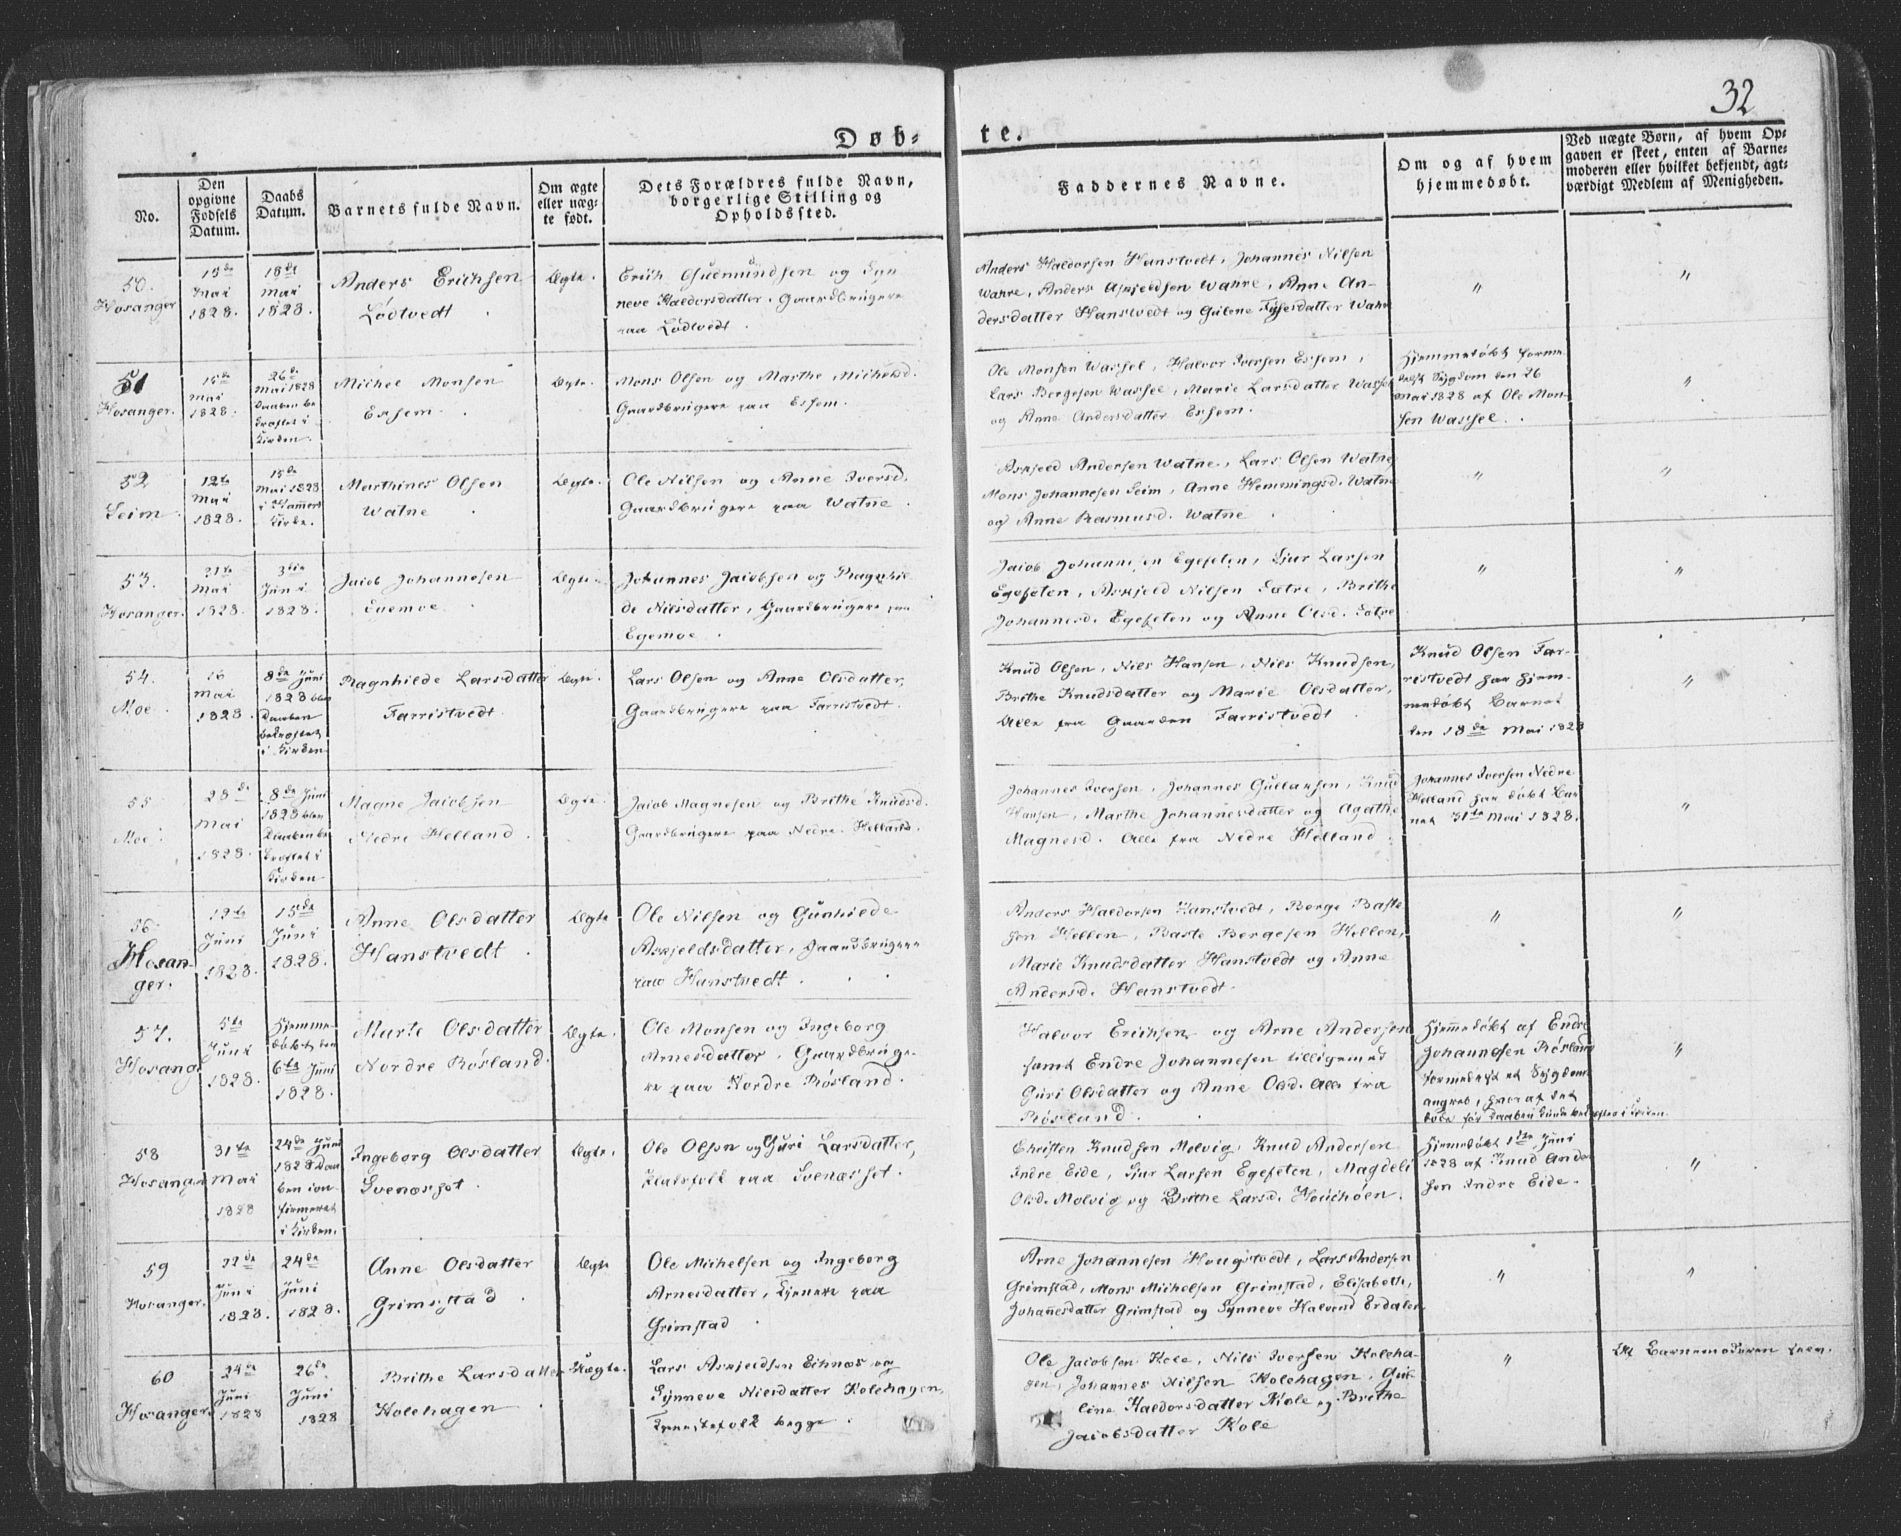 32
Døb-
te.
No.
Den
opgivne
Fødsels
Datum.
Daabs
Datum.
Barnets fulde Navn.
Om ægte
eller uæg-
te født.
Dets Forældres fulde Navn,
borgerlige Stilling og
Opholdssted.
Faddernes Navne.
Om og af hvem
hjemmedøbt.
Ved uægte Børn, af hvem Op-
gaven er skeet, enten af Barne-
moderen eller hvilket bekjendt, agt-
værdigt Medlem af Menigheden.
50.
Hosanger
15de
Mai
1828.
18de
Mai
1828.
Anders Erichsen
Lødtvedt
Ægte.
Erich Gudmundsen og Syn
neve Haldorsdatter. Gaardbrugere
paa Lødtvedt.
Anders Haldorsen Hanstvedt, Johannes Nilsen
Anders Askjeldsen Anne An-
dersdatter Hanstvedt og
"
"
51
Hosanger.
15de
Mai
1828.
26de
Mai 1828
Daaben be
kræftet i
Kirken.
Michel Monsen
Eshem.
Ægte.
Mons Olsen og Marthe Michelsd.
Gaardbrugere paa Eshem.
Ole Monsen Halvor Iversen Eshem,
Lars Bergesen Marie Larsdatter
og Anne Andersdatter Eshem.
Hjemmedøbt forme
delst Sygdom den 26
Mai 1828 af Ole Mon-
sen
"
52
Seim
12te
Mai
1828.
15de
Mai 1828
i Hammers
Kirke.
Marthines Olsen
Watne
Ægte.
Ole Nilsen og Anne Iversd.
Gaardbrugere paa Watne
Askjeld Andersen Watne, Lars Olsen Watne
Mons Johannesen Seim, Anne Hemmingsd. Watne
og Anne Rasmusd. Watne
"
"
53.
Hosanger.
21de
Mai
1828.
3die
Juni
1828.
Jacob Johannesen
Ægte.
Johannes Jacobsen og Ragnhil
de Nilsdatter, Gaardbrugere paa
Egemoe.
Jacob Johannesen Egeseten, Sjur Larsen
Egeseten, Askjeld Nilsen Sætre, Brithe
Johannesd. Egeseten og Anne Olsd. Sætre
"
"
54.
Moe
16
Mai
1828.
8de Juni
1828 blev
Daaben
bekræftet
i Kirken
Ragnhilde Larsdatter
Farristvedt.
Ægte.
Lars Olsen og Anne Olsdatter.
Gaardbrugere paa Farristvedt.
Knud Olsen, Nils Hansen, Nils Knudsen,
Brithe Knudsdatter og Marie Olsdatter,
Alle fra Gaarden Farristvedt
Knud Olsen Far-
ristvedt har hjem-
medøbt Barnet
den 18de Mai 1828
"
55
Moe.
28de
Mai
1828.
8de Juni
1828 blev
Daaben be
kræftet i
Kirken
Magne Jacobsen
Nedre Helland.
Ægte.
Jacob Magnesen og Brithe Knudsd.
Gaardbrugere paa Nedre Helland.
Johannes Iversen, Johannes Gullaksen, Knud
Hansen, Marthe Johannesdatter og Agathe
Magnesd. Alle fra Nedre Helland.
Johannes Iversen Nedre
Helland har døbt Bar
net 31te Mai 1828.
"
56.
Hosan-
ger.
Juni
1828.
15de
Juni
1828.
Anne Olsdatter
Hanstvedt
Ægte
Ole Nilsen og Gunhilde
Askjeldsdatter, Gaardbrugere
paa Hanstvedt.
Anders Haldorsen Hanstvedt, Berge Baste
sen Hellen, Baste Bergesen Hellen,
Marie Knudsdatter Hanstvedt og Anne
Andersd. Hanstvedt.
"
"
57.
Hosang.
5te
Juni
1828.
Hjemme-
døbt den
6te Juni
1828.
Marte Olsdatter
Nordre Røsland.
Ægte.
Ole Monsen og Ingeborg
Arnesdatter, Gaardbruge-
re paa Nordre Røsland.
Halvor Erichsen og Arne Andersen
samt Endre Johannesen tilligemed
Guri Olsdatter og Anne Olsd. Alle fra
Røsland.
Hjemmedøbt af Endre
Johannesen Røsland
formedelst et Sygdoms
angreb, hvoraf det
døde før Daaben kunde bekræftes i Kirken.
"
58
Hosanger
31te
Mai
1828
24de Juni
1828 Daa
ben con
firmeret
i Kirken.
Ingeborg Olsdatter
Ægte.
Ole Olsen og Guri Larsdatter,
Christen Knudsen Molvig, Knud Andersen
Indre Eide, Sjur Larsen Egeseten, Magdeli
Olsd. Molvig og Brithe Larsd.
Hjemmedøbt 1ste Juni
1828 af Knud Ander
sen Indre Eide.
"
59
Hosanger.
22de
Juni
1828.
24de
Juni
1828.
Anne Olsdatter
Grimstad
Ægte
Ole Michelsen og Ingeborg
Arnesdatter, Tjenere paa
Grimstad
Arne Johannesen Hougstvedt, Lars Andersen
Grimstad, Mons Michelsen Grimstad, Elisabeth,
Johannesdatter Grimstad og Synneve
"
"
60
Hosanger.
24de
Juni
1828
26de
Juni
1828
Brithe Larsdatter
Kolehagen
Uægte.
Lars Askjeldsen Eiknæs og
Synneve Nilsdatter Kolehagen,
Tjenestefolk begge.
Ole Jacobsen Kole, Nils Iversen Koleha-
gen, Johannes Nilsen Kolehagen, Gu-
line Haldorsdatter Kole og Brithe
Jacobsdatter Kole
"
Af Barnemoderen selv.